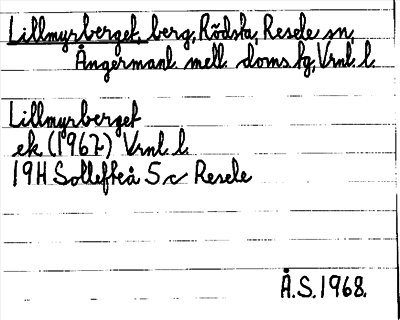 Lillmyrberget, berg, Rödsta, Resele sn,
Ångermanl. mell. doms tg, Vrnl. l.
Lillmyrberget
ek (1967) Vrnl. l.
19H Sollefteå 5c Resele
Å.S. 1968.